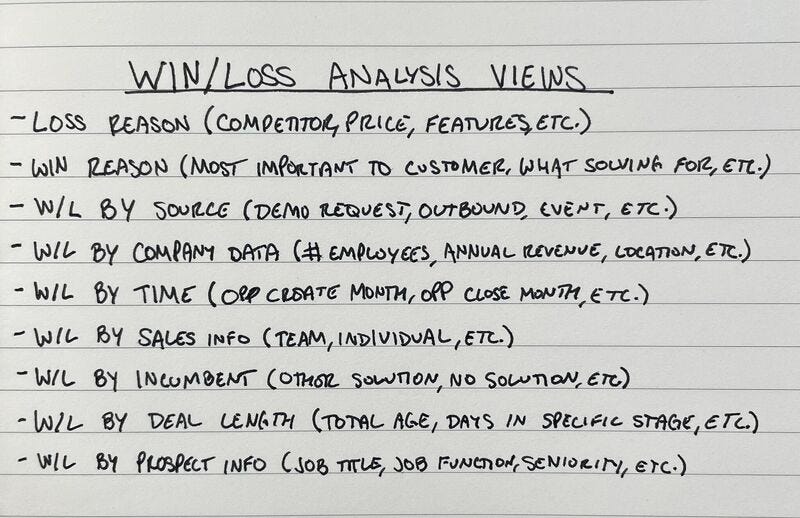 WIN/LOSS ANALYSIS VIEWS
- LOSS REASON (COMPETITOR, PRICE, FEATURES, ETC.)
- WIN REASON (MOST IMPORTANT TO CUSTOMER, WHAT SOLVING FOR, ETC.)
- W/L BY SOURCE (DEMO REQUEST, OUTBOUND, EVENT, ETC.)
- W/L BY COMPANY DATA (# EMPLOYEES, ANNUAL REVENUE, LOCATION, ETC.)
- W/L BY TIME (OPP CREATE MONTH, OPP CLOSE MONTH, ETC.)
- W/L BY SALES INFO (TEAM, INDIVIDUAL, ETC.)
- W/L BY INCUMBENT (OTHER SOLUTION, NO SOLUTION, ETC)
- W/L BY DEAL LENGTH (TOTAL AGE, DAYS IN SPECIFIC STAGE, ETC.)
- W/L BY PROSPECT INFO (JOB TITLE, JOB FUNCTION, SENIORITY, ETC.)